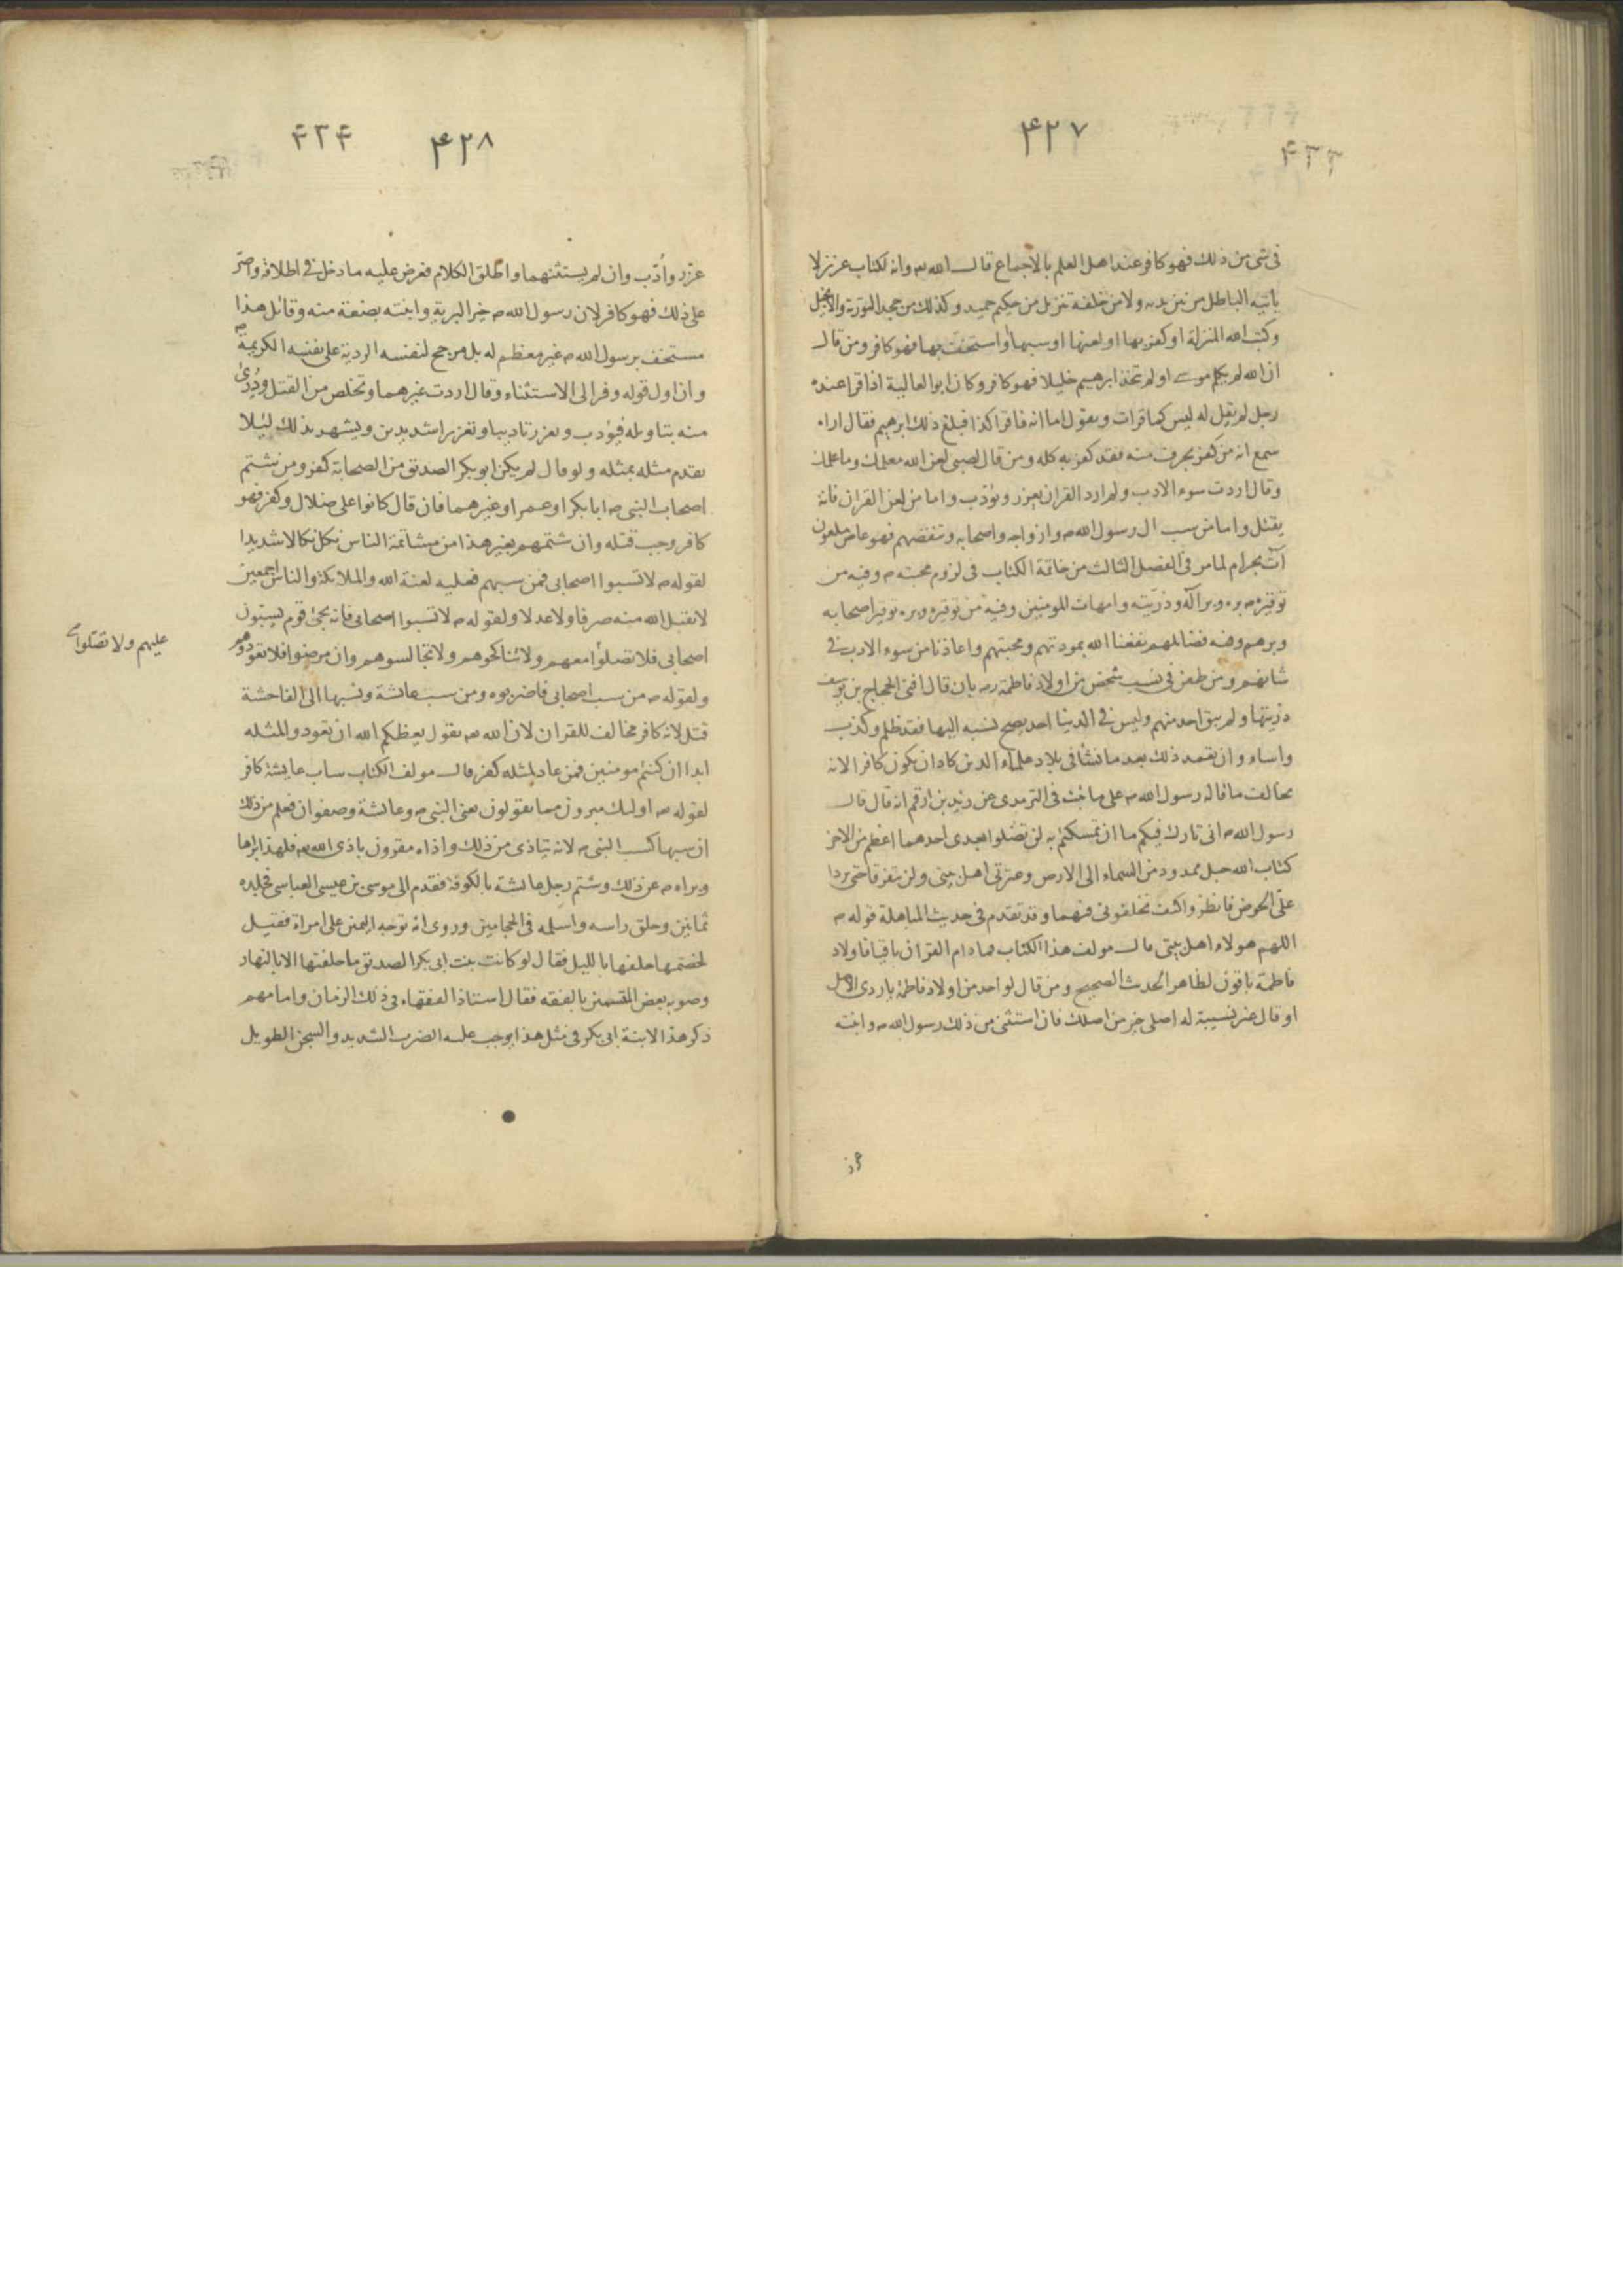 ۴۲۷
۴۳۳
فى شى من ذلك فهو كافر عند اهل العلم بالاجماع قال الله تع وانه لكتاب عزيز لا
ياتيه الباطل من بين يديه ولا من خلفه تنزيل من حكيم حميد وكذلك من جحد التورية والانجيل
وكتب الله المنزلة او كفر بها او لعنها او سبها او استخف بها فهو كافر ومن قال
ان الله لم يكلم موسى او لم يتخذ ابرهيم خليلا فهو كافر وكان ابو العالية اذا قرا عنده
رجل لم يقل له ليس كما قرات ويقول اما انه فاقرا كذا فبلغ ذلك ابرهيم فقال اراه
سمع انه من كفر بحرف منه فقد كفر به كله ومن قال لصبى لعن الله معلمك وما علمك
وقال اردت سوء الادب ولم ارد القران يعزر ويؤدب واما من لعن القران فانه
يقتل واما من سب ال رسول الله ص وازواجه واصحابه وتنقصهم فهو عاص ملعون
آت بحرام لما مر فى الفصل الثالث من خاتمة الكتاب فى لزوم محبته ص وفيه من
توقيره ص بره وبر آله وذريته وامهات المومنين وفيه من توقيره وبره توقير اصحابه
وبرهم وفيه فضائلهم نفعنا الله بمودتهم ومحبتهم واعاذنا من سوء الادب فى
شانهم ومن طعن فى نسب شخص من اولاد فاطمة رض بان قال افنى الحجاج بن يوسف
ذريتها ولم يبق احد منهم وليس فى الدنيا احد يصح نسبه اليها فقد ظلم وكذب
واساء وان تعمد ذلك بعد ما نشأ فى بلاد علماء الدين كاد ان يكون كافرا لانه
يخالف ما قاله رسول الله ص على ما ثبت فى الترمذى عن زيد بن ارقم انه قال قال
رسول الله ص انى تارك فيكم ما ان تمسكتم به لن تضلوا بعدى احدهما اعظم من الاخر
كتاب الله حبل ممدود من السماء الى الارض وعترتى اهل بيتى ولن يتفرقا حتى يردا
على الحوض فانظروا كيف تخلفونى فيهما وقد تقدم فى حديث المباهلة قوله ص
اللهم هولاء اهل بيتى قال مولف هذا الكتاب فما دام القران باقيا فاولاد
فاطمة باقون لظاهر الحديث الصحيح ومن قال لواحد من اولاد فاطمة يا ردى الاصل
او قال غير نسيبة له اصلى خير من اصلك فان استثنى من ذلك رسول الله ص وابنته
۴۲۸
۴۳۴
عزر واُدّب وان لم يستثنهما واطلق الكلام فعرض عليه ما دخل فى اطلاقه واصرّ
على ذلك فهو كافر لان رسول الله ص خير البرية وابنته بضعة منه وقائل هذا
مستخف برسول الله ص غير معظم له بل مرجح لنفسه الردية على نفسه الكريمة ص
وان اول قوله وفر الى الاستثناء وقال اردت غيرهما وتخلص من القتل ودُرئ
منه بتاويله فيؤدب ويعزر تاديبا وتعزيرا شديدين ويشهر بذلك ليلا
يقدم مثله بمثله ولو قال لم يكن ابو بكر الصديق من الصحابة كفر ومن شتم
اصحاب النبى ص ابا بكر او عمر او غيرهما فان قال كانوا على ضلال وكفر فهو
كافر وجب قتله وان شتمهم بغير هذا من مشاتمة الناس نكل نكالا شديدا
لقوله ص لا تسبوا اصحابى فمن سبهم فعليه لعنة الله والملائكة والناس اجمعين
لا يقبل الله منه صرفا ولا عدلا ولقوله ص لا تسبوا اصحابى فانه يجئ قوم يسبون
اصحابى فلا تصلوا معهم ولا تناكحوهم ولا تجالسوهم وان مرضوا فلا تعودوهم
عليهم ولا تصلوا
ولقوله ص من سب اصحابى فاضربوه ومن سب عائشة ونسبها الى الفاحشة
قتل لانه كافر مخالف للقران لان الله تع يقول يعظكم الله ان تعودوا لمثله
ابدا ان كنتم مومنين فمن عاد لمثله كفر قال مولف الكتاب ساب عايشة كافر
لقوله تع اولئك مبرون مما يقولون يعنى النبى ص وعائشة وصفوان فعلم من ذلك
ان سبها كسب النبى ص لانه يتاذى من ذلك واذاه مقرون باذى الله تع فلهذا ابراها
وبراه ص عن ذلك وشتم رجل عائشة بالكوفة فقدم الى موسى بن عيسى العباسى فجلده
ثمانين وحلق راسه واسلمه فى الحجامين وروى انه توجه اليمين على امراة فقيل
لخصمها حلفها بالليل فقال لو كانت بنت ابى بكر الصديق ما حلفتها الا بالنهار
وصوبه بعض المتسمين بالفقه فقال استاذ الفقهاء فى ذلك الزمان وامامهم
ذكر هذا لابنة ابى بكر فى مثل هذا يوجب عليه الضرب الشديد والسجن الطويل